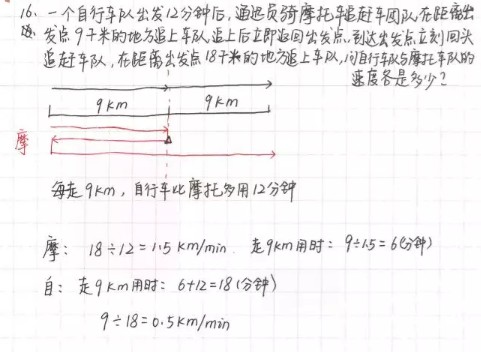 16、一个自行车队出发12分钟后，通迅员骑摩托车追赶车团队，在距离出
发点9千米的地方追上车队，追上后立即返回出发点，到达出发点立刻回头
追赶车队，在距离出发点18千米的地方追上车队，问自行车队与摩托车队的
速度各是多少？
9km 9km
摩
每走9km，自行车比摩托多用12分钟
摩： 18÷12=1.5km/min 走9km用时： 9÷1.5=6(分钟)
自： 走9km用时： 6+12=18(分钟)
9÷18=0.5km/min